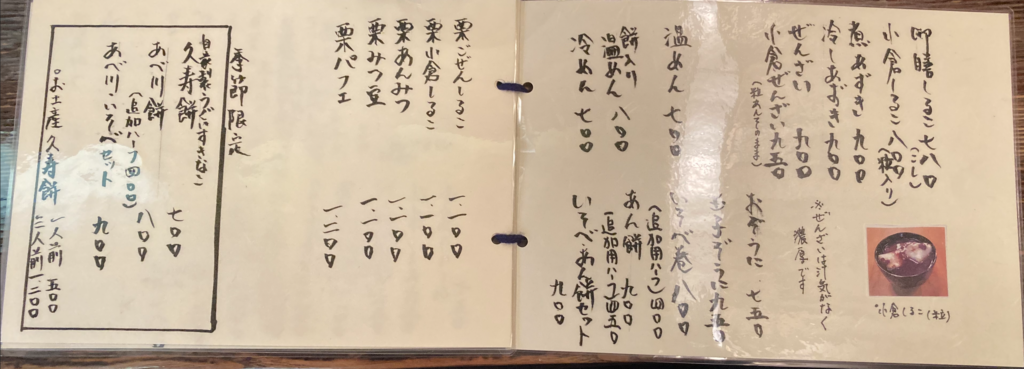 御膳しるこ 七八〇
(こし)
小倉しるこ 八〇〇
(粒入り)
煮あずき 九〇〇
冷しあずき 九〇〇
ぜんざい 九〇〇
小倉ぜんざい 九五〇
(粒あんそのまま)
温めん 七〇〇
餅入り
温めん 八〇〇
冷めん 七〇〇
※ぜんざいは汁気がなく
濃厚です
小倉しるこ(粒)
おぞうに 七五〇
九五〇
いそべ巻 八〇〇
(追加用ハーフ)四〇〇
あん餅 九〇〇
(追加用ハーフ)四五〇
いそべ・あん餅セット
九〇〇
栗ごぜんしるこ 一、一〇〇
栗小倉しるこ 一、一〇〇
栗あんみつ 一、一〇〇
栗みつ豆 一、一〇〇
栗パフェ 一、二〇〇
季節限定
自家製うぐいすきなこ
久寿餅 七〇〇
あべ川餅 八〇〇
(追加ハーフ四〇〇)
あべ川・いそべセット 九〇〇
お土産 久寿餅 一人前 五〇〇
二人前 一、二〇〇